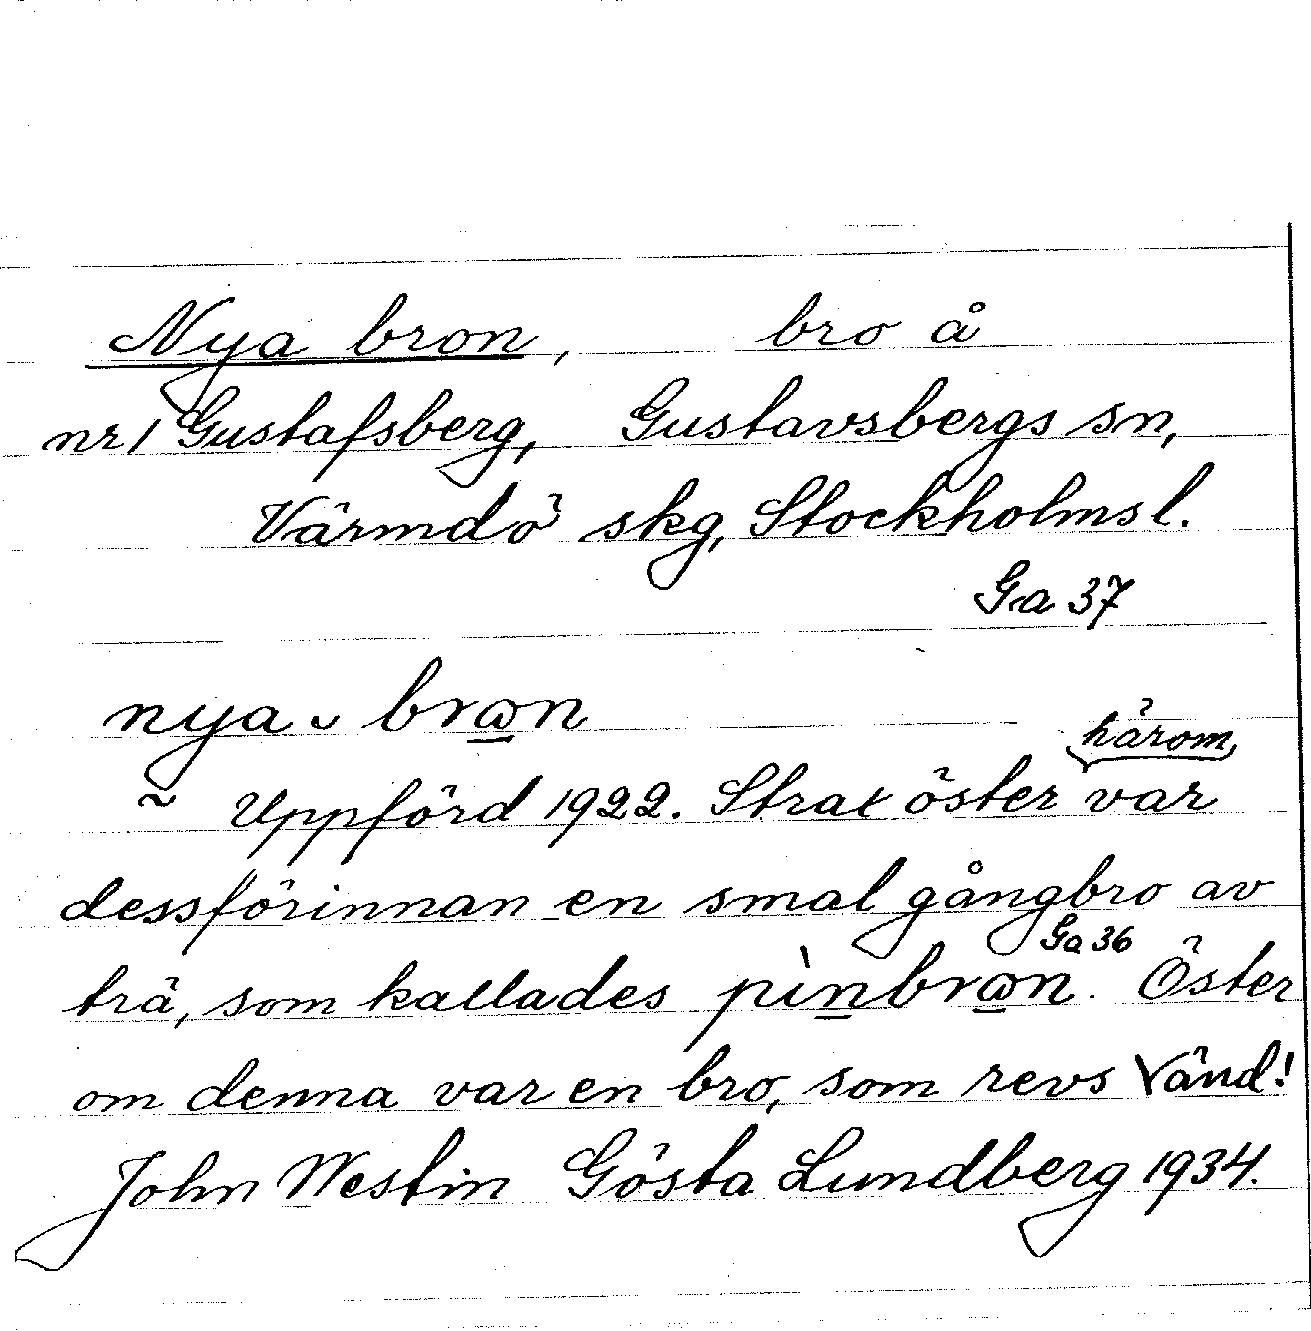 Nya bron, bro å
nr 1 Gustafsberg, Gustavsbergs sn,
Värmdö skg, Stockholms l.
Ga 37
nya ᴗ brωn
härom
~ Uppförd 1922. Strax öster var
dessförinnan en smal gångbro av
Ga 36
trä, som kallades pìnbrωn. Öster
om denna var en bro, som revs Vänd!
John Westin Gösta Lundberg 1934.